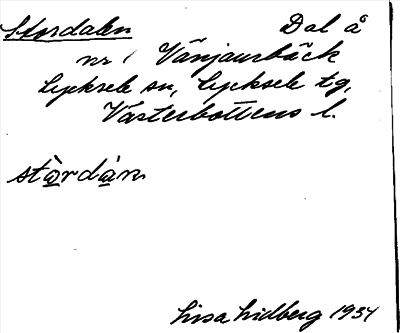 Stordalen Dal å
nr 1 Vänjaurbäck
Lycksele sn, Lycksele tg,
Västerbottens l.
stòrdàn
Lisa Lidberg 1934